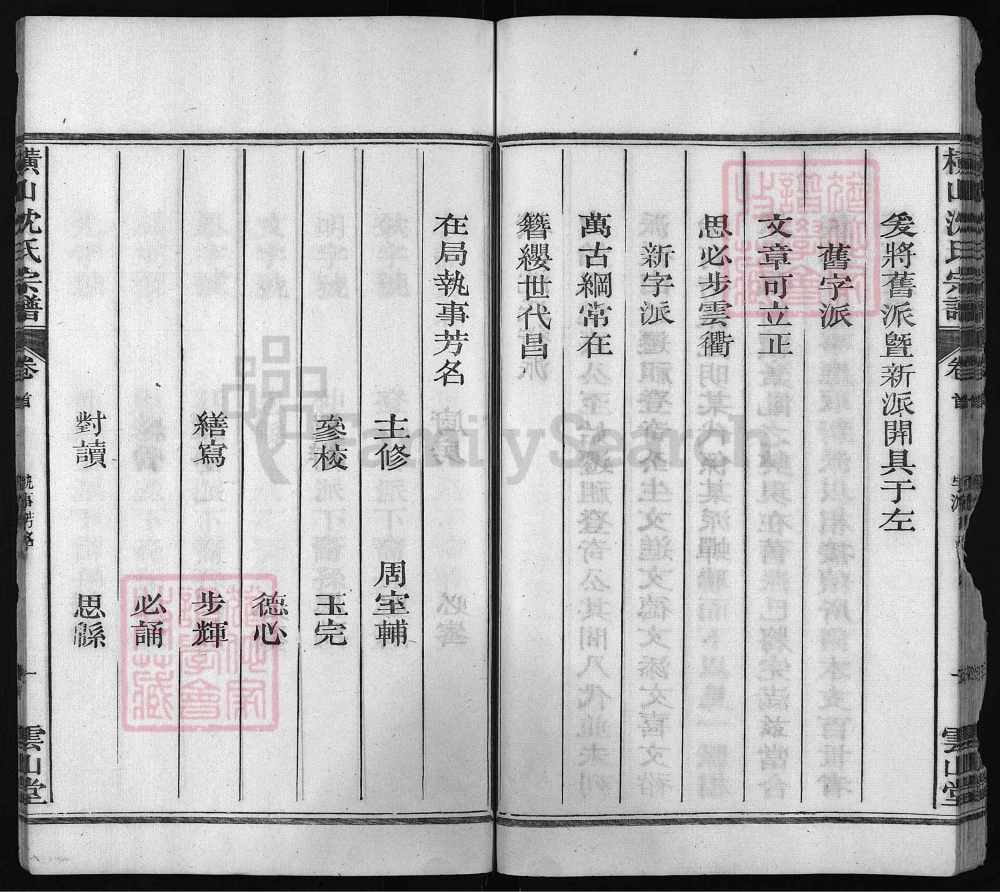 橫山沈氏宗譜 卷首 字派 一 雲山堂
矣將舊派曁新派開具于左
舊字派
文章可立正
思必步雲衢
新字派
萬古綱常在
簪纓世代昌
在局執事芳名
主修 周室輔
參校 玉完
德心
繕寫 步輝
必誦
對讀 思緜
橫山沈氏宗譜 卷首 執事芳名 一 雲山堂
FamilySearch